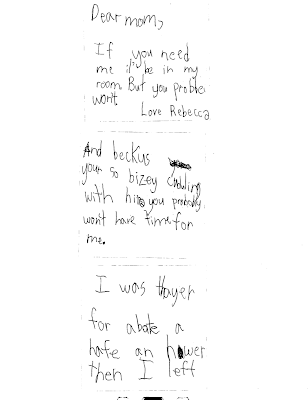 Dear mom,
If you need
me il be in my
room But you probble
wont
Love Rebecca
And beckus
your so bizey Cudding
with him you probably
wont have time for
me.
I was thayer
for abate a
hafe an hower
then I left